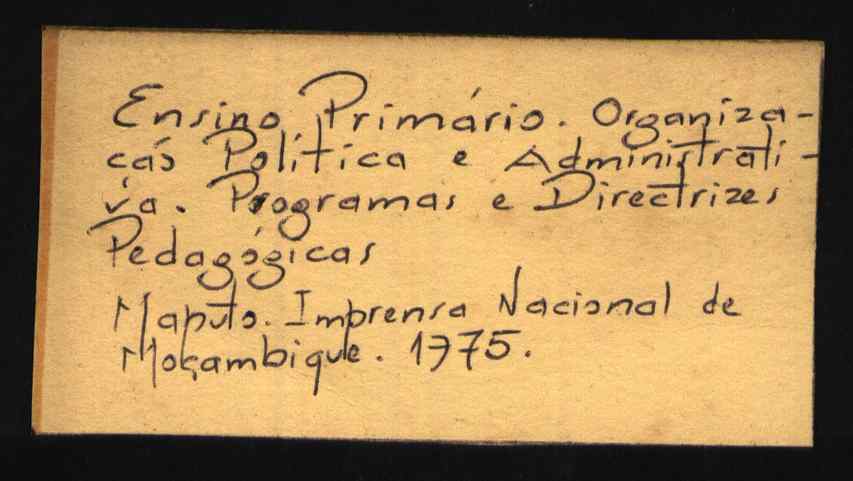 Ensino Primário. Organiza-
cás Política e Administrati-
va. Programas e Directrizes
Pedagógicas
Maputo. Imprensa Nacional de
Moçambique. 1975.